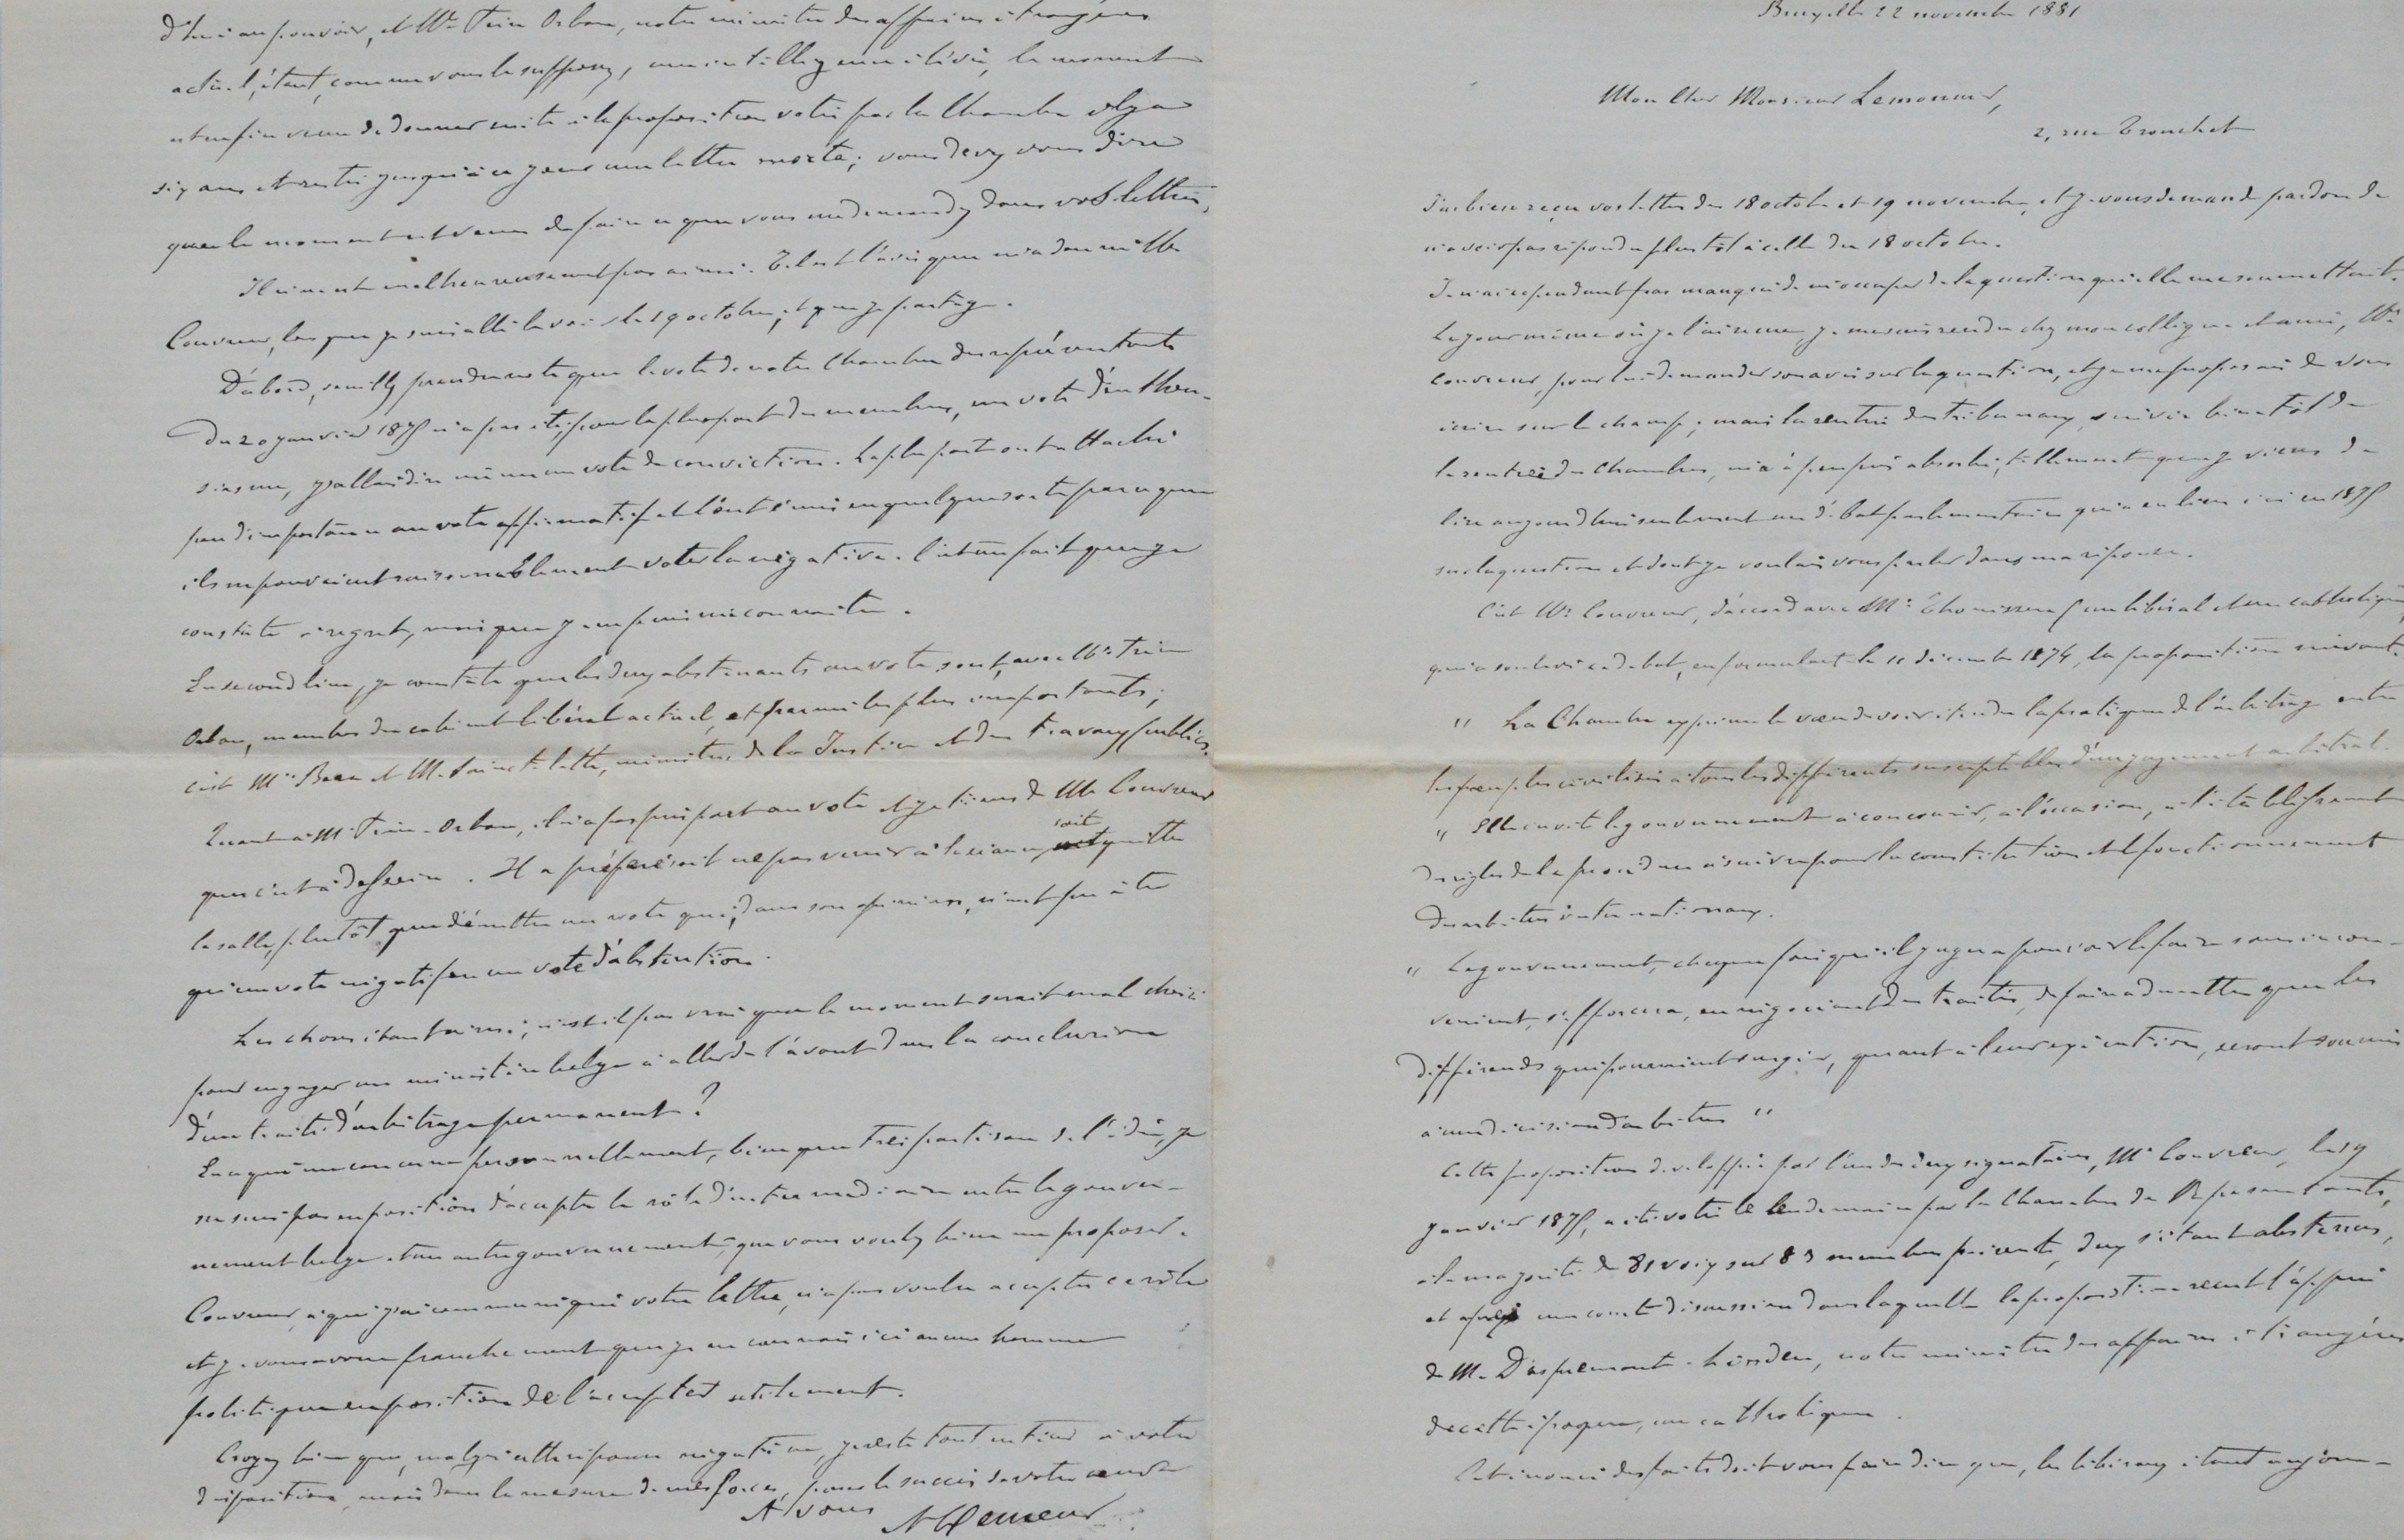 Bruxelles 22 novembre 1881
Mon cher Monsieur Lemonnier,
2, rue Tronchet
J'ai bien reçu vos lettres des 18 octobre et 19 novembre, et je vous demande pardon de
n'avoir pas répondu plus tôt à celle du 18 octobre.
Je n'ai cependant pas manqué de m'occuper de la question qu'elle me soumettait.
Le jour même où je l'ai reçue, je me suis rendu chez mon collègue et ami, Mr
Couvreur, pour lui demander son avis sur la question, et je me proposais de vous
écrire sur le champ; mais la rentrée des tribunaux, suivie bientôt de
la rentrée des Chambres, m'a à peu près absorbé, tellement que je viens de
lire aujourd'hui seulement un débat parlementaire qui a eu lieu ici en 1875
sur la question et dont je voulais vous parler dans ma réponse.
C'est Mr Couvreur, d'accord avec Mr Thonissen (un libéral et un catholique)
qui a soulevé ce débat, en formulant le 11 décembre 1874, la proposition suivante
" La Chambre exprime le vœu de voir étendre la pratique de l'arbitrage entre
les peuples civilisés à tous les différents susceptibles d'engagement arbitral.
" Elle invite le gouvernement à concourir, à l'occasion, à l'établissement
des règles de la procédure à suivre pour la constitution et le fonctionnement
des arbitres internationaux.
" Le gouvernement, chaque fois qu'il jugera pouvoir le faire sans incon-
vénient, s'efforcera, en négociant des traités, de faire admettre que les
différends qui pourraient surgir, quant à leur exécution, seront soumis
à une décision d'arbitres "
Cette proposition développée par l'un des deux signataires, Mr Couvreur, le 19
janvier 1875, a été votée le lendemain par la Chambre des Représentants,
à la majorité de 81 voix sur 83 membres présents, deux s'étant abstenus,
et après une courte discussion dans laquelle la proposition reçut l'appui
de M. D'Aspremont-Lynden, notre ministre des affaires étrangères
de cette époque, un catholique.
Cet énoncé des faits doit vous faire dire que, les libéraux étant aujour-
d'hui au pouvoir, et Mr Frère Orban, notre ministre des affaires étrangères
actuel, étant, comme vous le supposez, une intelligence élevée, le moment
est enfin venu de donner suite à la proposition votée par la Chambre il y a
six ans et restée jusqu'à ce jour une lettre morte; vous devez vous dire
que le moment est venu de faire ce que vous me demandez dans vos lettres,
Il n'en est malheureusement pas ainsi. Tel est l'avis que m'a donné Mr
Couvreur, lorsque je suis allé le voir le 19 octobre, et que je partage.
D'abord, veuillez prendre note que le vote de notre Chambre des représentants
du 20 janvier 1875 n'a pas été, pour la plupart des membres, un vote d'enthou-
siasme, j'allais dire même un vote de conviction. La plupart ont attaché
peu d'importance au vote affirmatif et l'ont émis en quelque sorte parce que
ils ne pouvaient raisonnablement voter la négative. C'est un fait que je
constate à regret, mais que je ne puis méconnaître.
En second lieu, je constate que les deux abstenants au vote sont, avec Mr Frère
Orban, membres du cabinet libéral actuel, et parmi les plus importants;
c'est Mr Bara et M. Sainctelette, ministres de la Justice et des travaux publics.
Quant à Mr Frère-Orban, il n'a pas pris part au vote et je tiens de Mr Couvreur
que c'est à dessein. Il a préféré soit ne pas venir à la séance, soit quitter
la salle, plutôt que d'émettre un vote qui, dans son opinion, n'eut pu être
qu'un vote négatif ou un vote d'abstention.
Les choses étant ainsi, n'est-il pas vrai que le moment serait mal choisi
pour engager un ministère belge à aller de l'avant dans la conclusion
d'un traité d'arbitrage permanent?
En ce qui me concerne personnellement, bien que très partisan de l'idée, je
ne suis pas en position d'accepter le rôle d'intermédiaire entre le gouver-
nement belge et un autre gouvernement, que vous voulez bien me proposer.
Couvreur, à qui j'ai communiqué votre lettre, n'a pas voulu accepter ce rôle
et je vous avoue franchement que je ne connais ici aucun homme
politique en position de l'accepter utilement.
Croyez bien que, malgré cette réponse négative, je reste tout entier à votre
disposition, mais dans la mesure de mes forces, pour le succès de votre œuvre
A vous